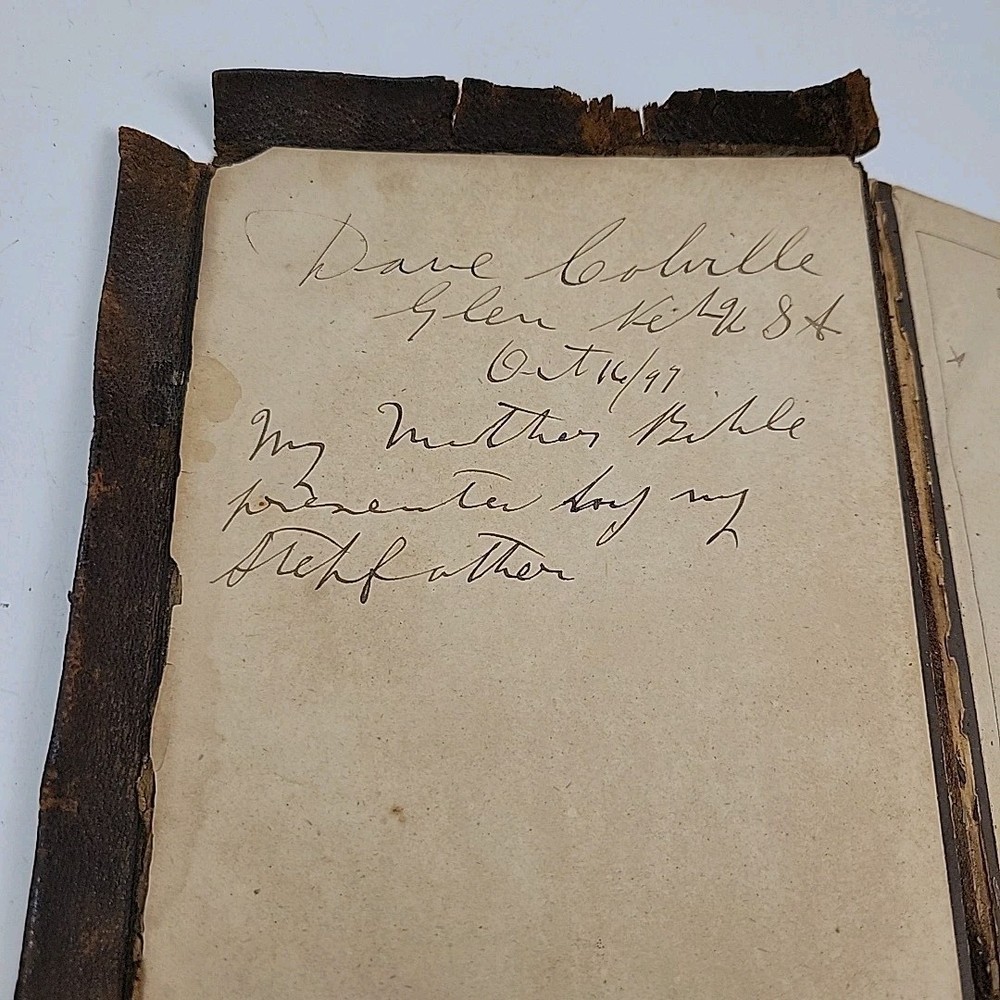 Dave Colville
Glen
Oct 16/97
My Mothers Bible
presented by my
Stepfather